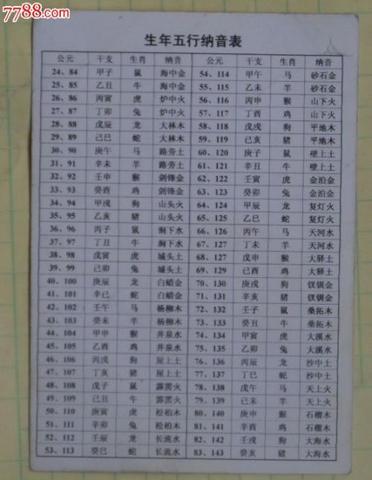 7788.com
生年五行纳音表
公元 干支 生肖 纳音 公元 干支 生肖 纳音
24、84 甲子 鼠 海中金 54、114 甲午 马 砂石金
25、85 乙丑 牛 海中金 55、115 乙未 羊 砂石金
26、86 丙寅 虎 炉中火 56、116 丙申 猴 山下火
27、87 丁卯 兔 炉中火 57、117 丁酉 鸡 山下火
28、88 戊辰 龙 大林木 58、118 戊戌 狗 平地木
29、89 己巳 蛇 大林木 59、119 己亥 猪 平地木
30、90 庚午 马 路旁土 60、120 庚子 鼠 壁上土
31、91 辛未 羊 路旁土 61、121 辛丑 牛 壁上土
32、92 壬申 猴 剑锋金 62、122 壬寅 虎 金泊金
33、93 癸酉 鸡 剑锋金 63、123 癸卯 兔 金泊金
34、94 甲戌 狗 山头火 64、124 甲辰 龙 复灯火
35、95 乙亥 猪 山头火 65、125 乙巳 蛇 复灯火
36、96 丙子 鼠 涧下水 66、126 丙午 马 天河水
37、97 丁丑 牛 涧下水 67、127 丁未 羊 天河水
38、98 戊寅 虎 城头土 68、128 戊申 猴 大驿土
39、99 己卯 兔 城头土 69、129 己酉 鸡 大驿土
40、100 庚辰 龙 白蜡金 70、130 庚戌 狗 钗钏金
41、101 辛巳 蛇 白蜡金 71、131 辛亥 猪 钗钏金
42、102 壬午 马 杨柳木 72、132 壬子 鼠 桑拓木
43、103 癸未 羊 杨柳木 73、133 癸丑 牛 桑拓木
44、104 甲申 猴 井泉水 74、134 甲寅 虎 大溪水
45、105 乙酉 鸡 井泉水 75、135 乙卯 兔 大溪水
46、106 丙戌 狗 屋上土 76、136 丙辰 龙 沙中土
47、107 丁亥 猪 屋上土 77、137 丁巳 蛇 沙中土
48、108 戊子 鼠 霹雳火 78、138 戊午 马 天上火
49、109 己丑 牛 霹雳火 79、139 己未 羊 天上火
50、110 庚寅 虎 松柏木 80、140 庚申 猴 石榴木
51、111 辛卯 兔 松柏木 81、141 辛酉 鸡 石榴木
52、112 壬辰 龙 长流水 82、142 壬戌 狗 大海水
53、113 癸巳 蛇 长流水 83、143 癸亥 猪 大海水